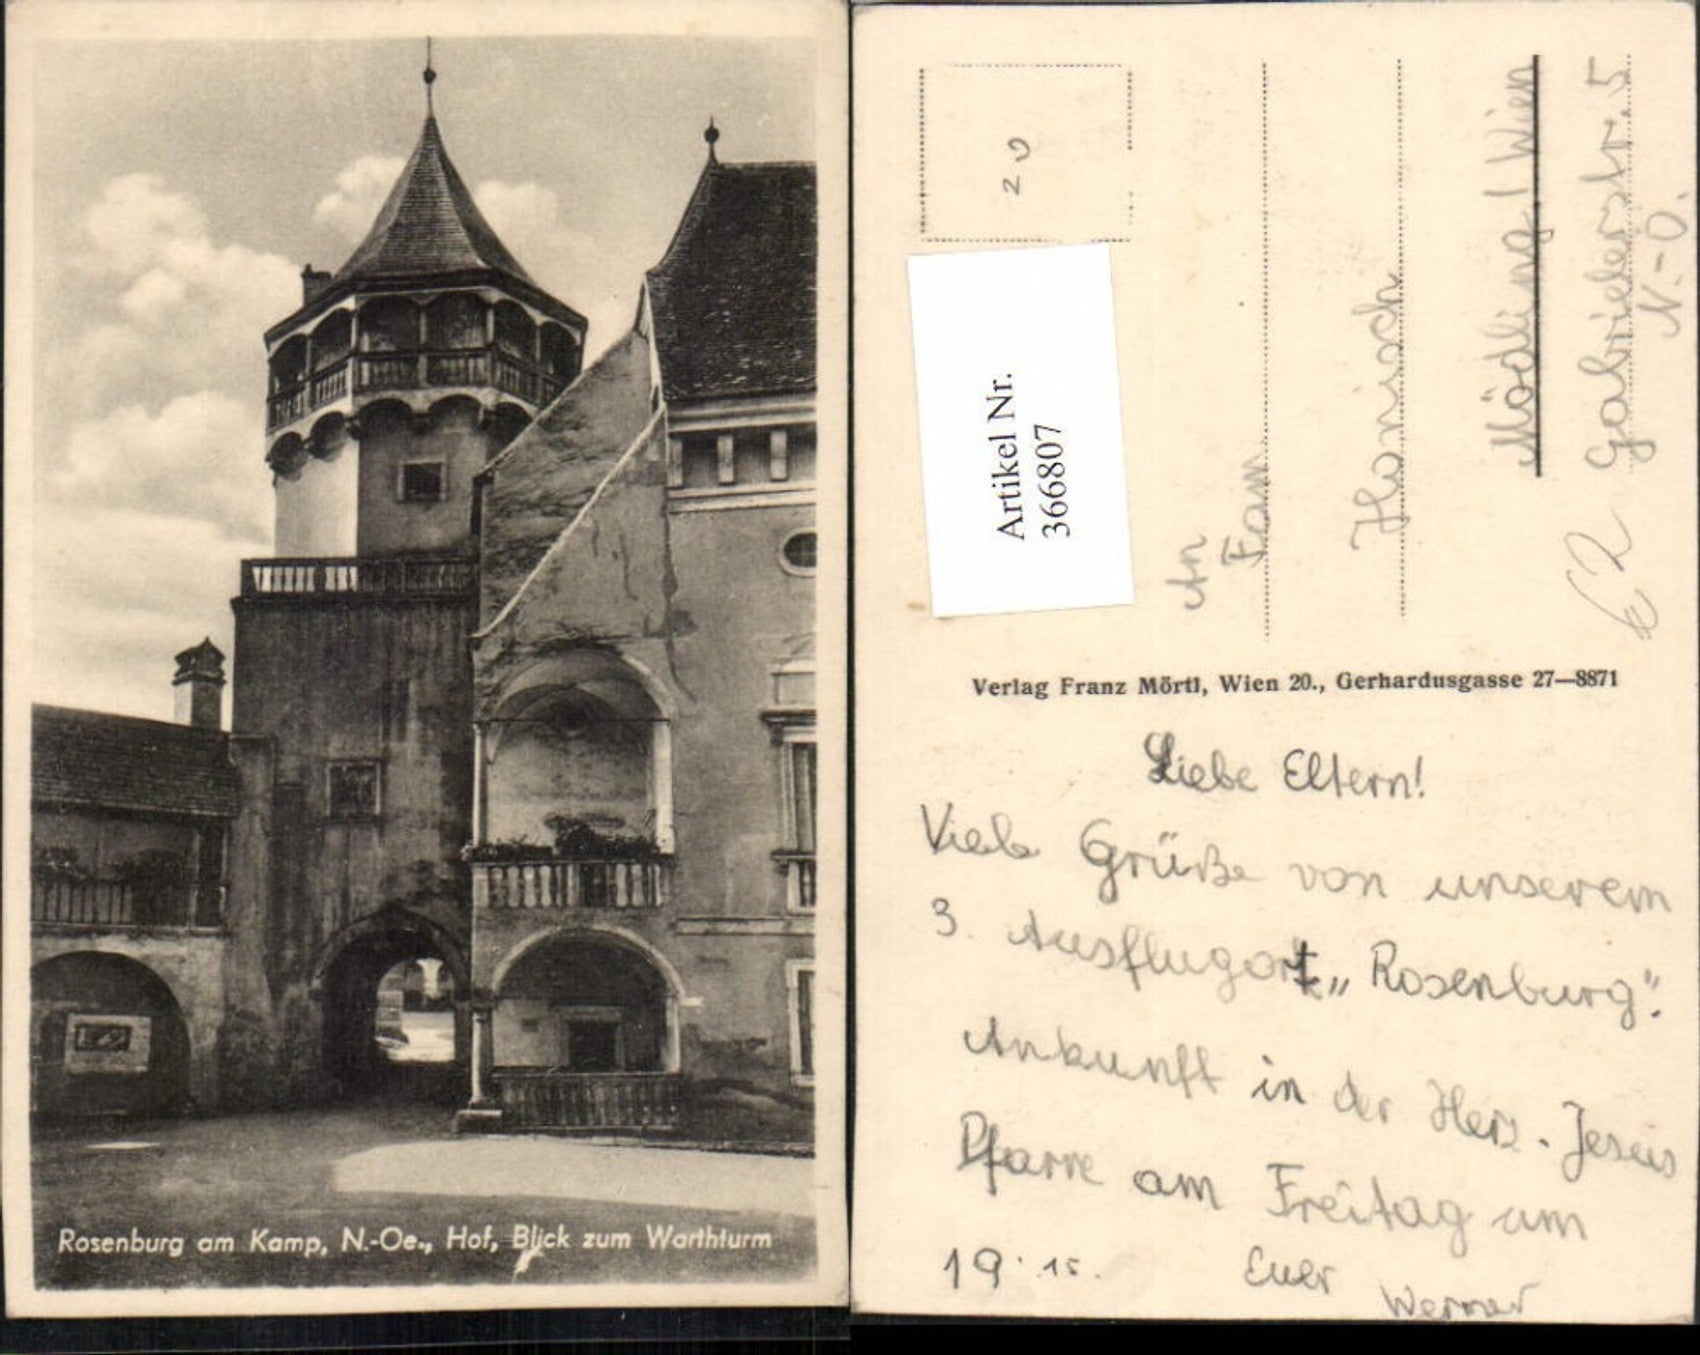 Rosenburg am Kamp, N.-Oe., Hof, Blick zum Warthturm
20
Artikel Nr.
366807
An
Fam
Hanisch
Mödling / Wien
Gabrielerstr. 5
N.-Ö.
€ 2
Verlag Franz Mörtl, Wien 20., Gerhardusgasse 27—8871
Liebe Eltern!
Viele Grüße von unserem
3. Ausflugort „Rosenburg".
Ankunft in der Herz-Jesus
Pfarre am Freitag um
19·15.
Euer
Werner